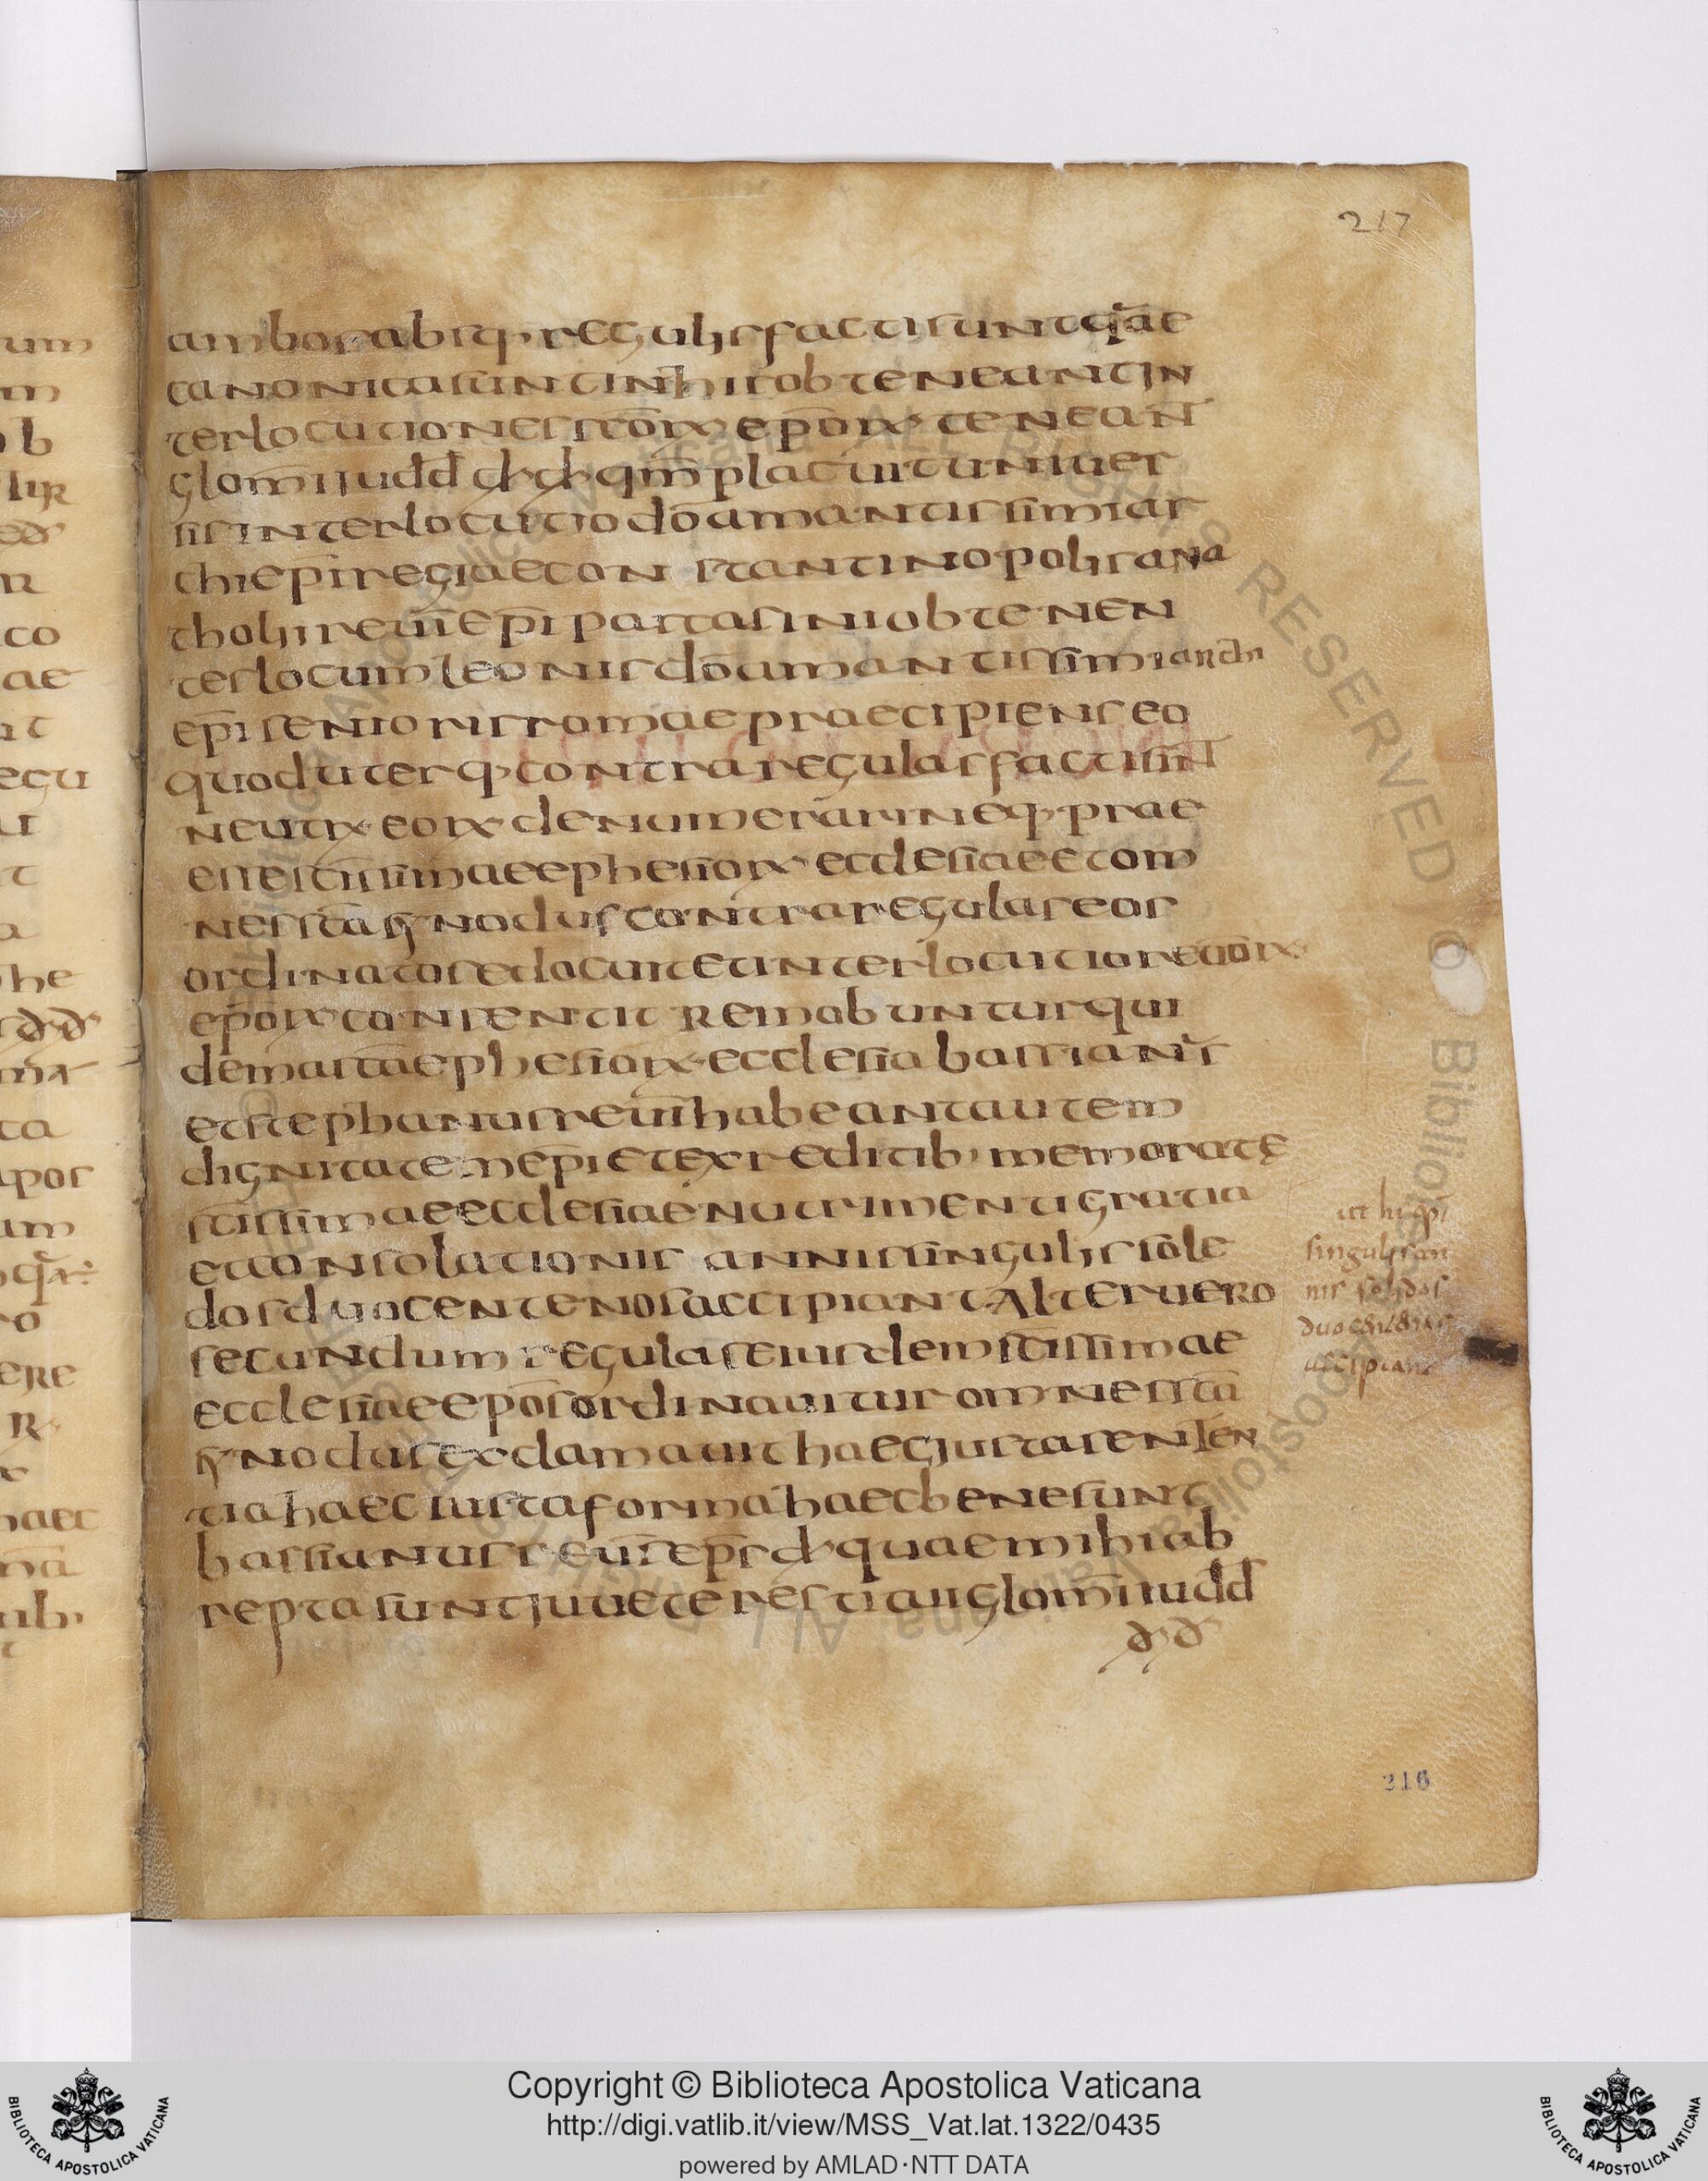 217
ambo seabsq· regulis factisunt q̄ae
canonica sunt in his obteneant in
terlocutiones scōrx epōrx teneant
glom̄ iudd dx dx qm̄ placuit uniuer
sis interlocutio dō amantissimi ar
chiep̄i regiae constantinopolis ana
tholii reum̄ ep̄i partasini obtenen
tes locum leonis dō amantissimi arch
ep̄i senioris romae praecipiens eo
quod uterq· contra regulas facti sint
neutrx eorx denumerari neq· prae
esse sc̄issimae ephesiorx ecclesiae et om
nes sc̄a synodus contra regulas eos
ordinatos edocuit et interlocutione toōrx
epōrx consentit Remobuntur qui
dem a sc̄a ephesiorx ecclesia bassianus
et stephanus reum̄ habeant autem
dignitatem ep̄i et ex reditib· memoratę
sc̄issimae ecclesiae nutrimenti gratia
et consolationis annis singulis sole
dos ducentenos accipiant· Alter uero
secundum regulas eiusdem sc̄issimae
ecclesiae epōs ordinauitur omnes sc̄a
synodus exclamauit haec iusta senten
tia haec iusta forma haec bene sunt
bassianus reum̄s ep̄s dx quae mihi ab
repta sunt iuuete restitui glom̄ iudd
dx dx
ut hi ep̄i
singulis an
nis solidos
accipiant
216
Copyright © Biblioteca Apostolica Vaticana
http://digi.vatlib.it/view/MSS_Vat.lat.1322/0435
powered by AMLAD·NTT DATA
BIBLIOTECA APOSTOLICA VATICANA
BIBLIOTECA APOSTOLICA VATICANA